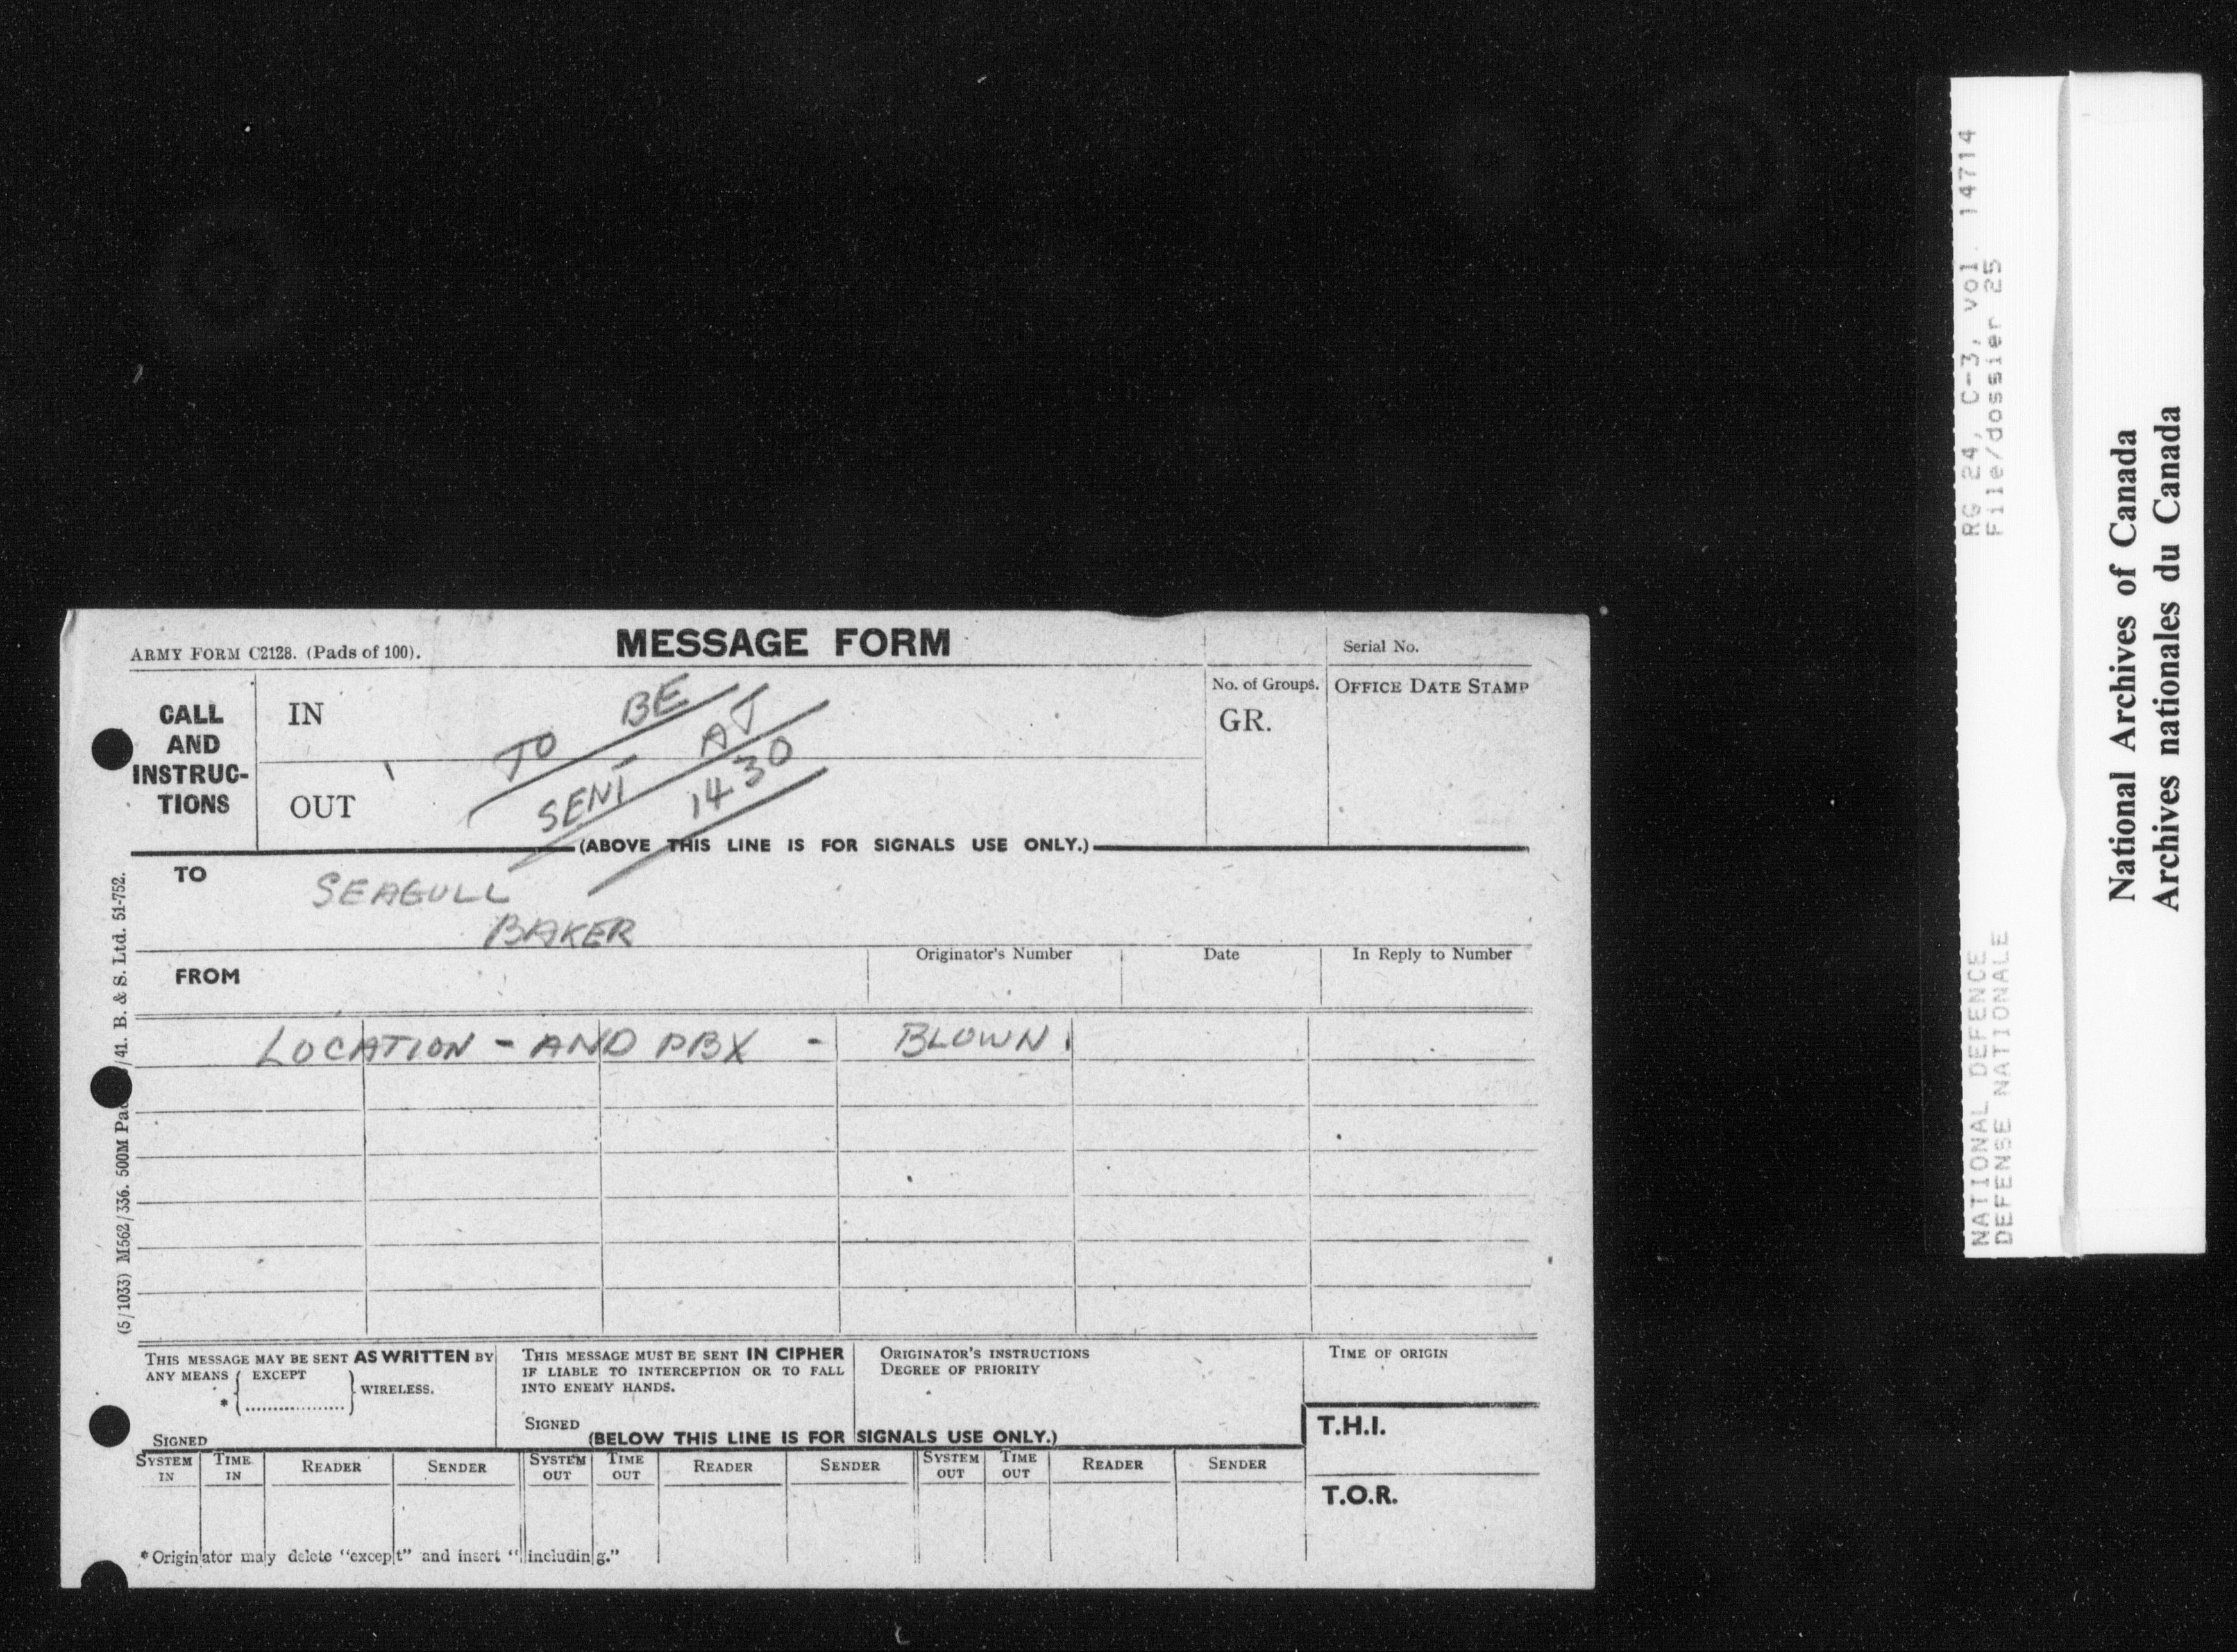 ARMY FORM C2128. (Pads of 100).
MESSAGE FORM
Serial No.
CALL AND INSTRUC-TIONS
IN
OUT
No. of Groups.
GR.
OFFICE DATE STAMP
TO BE
SENT AT
1430
(ABOVE THIS LINE IS FOR SIGNALS USE ONLY.)
TO
SEAGULL
BAKER
FROM
Originator's Number
Date
In Reply to Number
LOCATION - AND PBX - BLOWN.
THIS MESSAGE MAY BE SENT AS WRITTEN BY
ANY MEANS
EXCEPT
*
WIRELESS.
SIGNED
THIS MESSAGE MUST BE SENT IN CIPHER
IF LIABLE TO INTERCEPTION OR TO FALL
INTO ENEMY HANDS.
SIGNED
ORIGINATOR'S INSTRUCTIONS
DEGREE OF PRIORITY
TIME OF ORIGIN
(BELOW THIS LINE IS FOR SIGNALS USE ONLY.)
T.H.I.
SYSTEM IN
TIME IN
READER
SENDER
SYSTEM OUT
TIME OUT
READER
SENDER
SYSTEM OUT
TIME OUT
READER
SENDER
T.O.R.
*Originator may delete "except" and insert "including."
(5/1033) M562/336. 500M /41. B. & S. Ltd. 51-752.
RG 24, C-3, vol. 14714
File/dossier 25
NATIONAL DEFENCE
DEFENSE NATIONALE
National Archives of Canada
Archives nationales du Canada